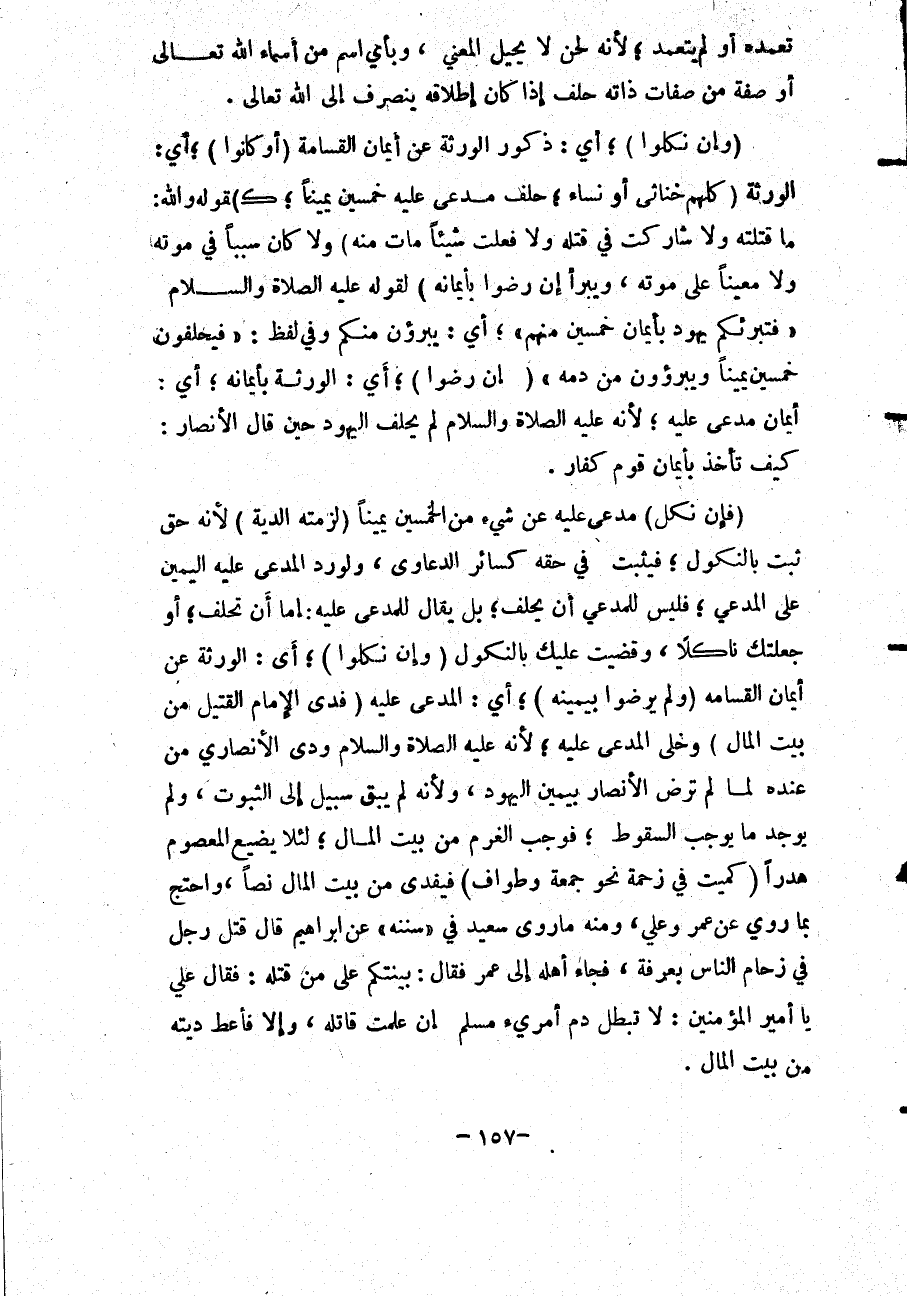 تعمده أو لم يتعمد ؛ لأنه لحن لا يحيل المعني ، وبأي اسم من أسماء الله تعــالى
أو صفة من صفات ذاته حلف إذا كان إطلاقه ينصرف إلى الله تعالى .
(وإن نكلوا ) ؛ أي : ذكور الورثة عن أيمان القسامة (أو كانوا ) ؛أي:
الورثة ( كلهم خناثى أو نساء ؛ حلف مـدعى عليه خمسين يميناً ؛ كـ)قوله والله:
ما قتلته ولا شاركت في قتله ولا فعلت شيئاً مات منه) ولا كان سبباً في موته
ولا معيناً على موته ، ويبرأ إن رضوا بأيمانه ) لقوله عليه الصلاة والســـلام
« فتبرئكم يهود بأيمان خمسين منهم» ؛ أي : يبرؤن منكم وفي لفظ : « فيحلفون
خمسين يميناً ويبرؤون من دمه » ( ان رضوا ) ؛ أي : الورثـة بأيمانه ؛ أي :
أيمان مدعى عليه ؛ لأنه عليه الصلاة والسلام لم يحلف اليهود حين قال الأنصار :
كيف تأخذ بأيمان قوم كفار .
(فإن نكل) مدعى عليه عن شيء من الخمسين يميناً (لزمته الدية ) لأنه حق
ثبت بالنكول ؛ فيثبت في حقه كسائر الدعاوى ، ولو رد المدعى عليه اليمين
على المدعي ؛ فليس للمدعي أن يحلف؛ بل يقال للمدعى عليه: اما أن تحلف؛ أو
جعلتك ناكلًا ، وقضيت عليك بالنكول ( وإن نكلوا ) ؛ أى : الورثة عن
أيمان القسامه (ولم يرضوا بيمينه ) ؛ أي : المدعى عليه ( فدى الإمام القتيل من
بيت المال ) وخلى المدعى عليه ؛ لأنه عليه الصلاة والسلام ودى الأنصاري من
عنده لمـا لم ترض الأنصار بيمين اليهود ، ولأنه لم يبق سبيل إلى الثبوت ، ولم
يوجد ما يوجب السقوط ؛ فوجب الغرم من بيت المـال ؛ لئلا يضيع المعصوم
هدراً ( كميت في زحمة نحو جمعة وطواف) فيفدى من بيت المال نصاً ،واحتج
بما روي عن عمر وعلي، ومنه ماروى سعيد في «سننه» عن ابراهيم قال قتل رجل
في زحام الناس بعرفة ، فجاء أهله إلى عمر فقال : بينتكم على من قتله : فقال علي
يا أمير المؤمنين : لا تبطل دم أمريء مسلم ان علمت قاتله ، وإلا فأعط ديته
من بيت المال .
-١٥٧-